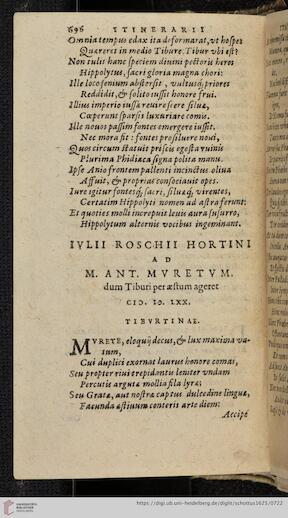 696 ITINERARII
Omnia tempus edax ita deformarat, vt hospes
Quæreret in medio Tibure, Tibur vbi est?
Non tulit hanc speciem diuini pectoris heros
Hippolytus, sacri gloria magna chori:
Ille loco senium abstersit, vultusq; priores
Reddidit, & solito iussit honore frui.
Illius imperio iussæ reuirescere siluæ,
Cæperunt sparsis luxuriare comis.
Ille nouos passim fontes emergere iussit.
Nec mora sit: fontes prosiluere noui,
Quos circum statuit priscis egesta ruinis
Plurima Phidiaca signa polita manu.
Ipse Anio frontem pallenti incinctus oliua
Affuit, & proprias consociauit opes.
Iure igitur fontesq; sacri, siluæq; virentes,
Certatim Hippolyti nomen ad astra ferunt:
Et quoties molli increpuit leuis aura susurro,
Hippolytum alternis vocibus ingeminant.
IVLII ROSCHII HORTINI
AD
M. ANT. MVRETVM.
dum Tiburi per æstum ageret
CIƆ. IƆ. LXX.
TIBVRTINAE.
MVRETE, eloquij decus, & lux maxima va-
tum,
Cui duplici exornat laurus honore comas,
Seu propter riui trepidantis leniter vndam
Percutis argutæ mollia fila lyræ;
Seu Graiæ, aut nostræ captus dulcedine linguæ,
Facunda æstiuum conteris arte diem:
Accipe
UNIVERSITÄTS-
BIBLIOTHEK
HEIDELBERG
https://digi.ub.uni-heidelberg.de/diglit/schottus1625/0722